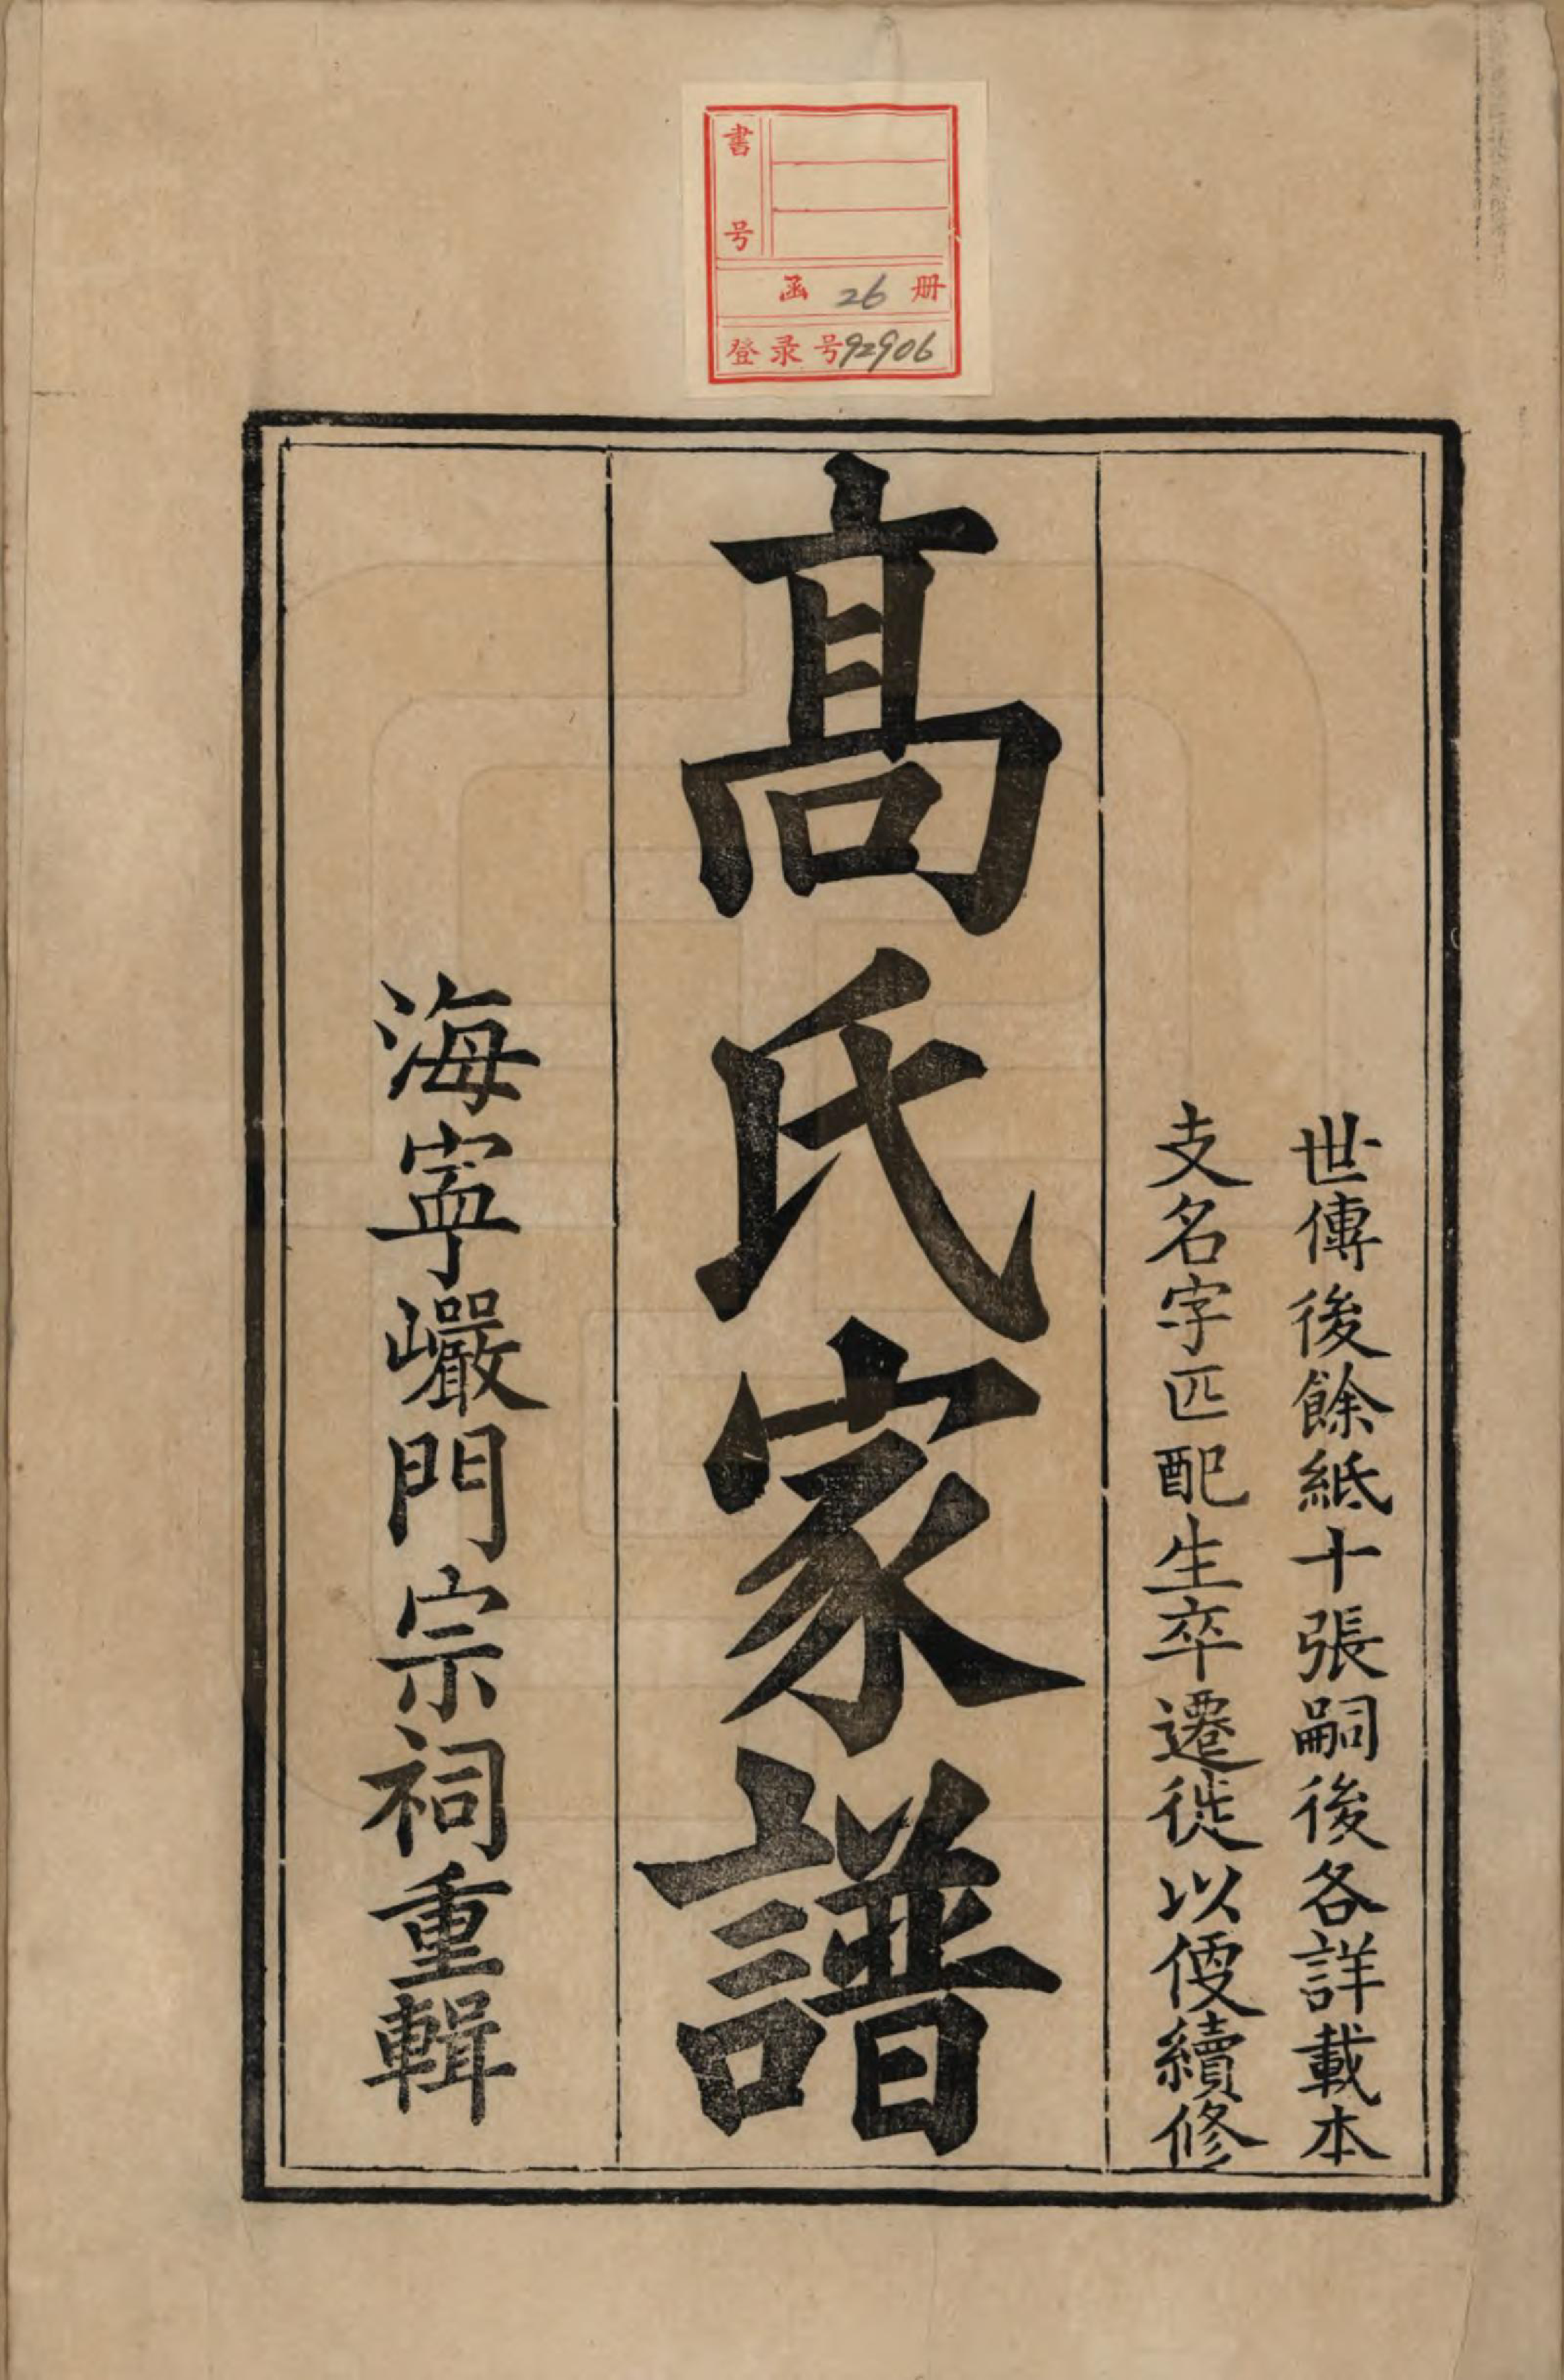 書号
函 26 册
登录号92906
世傳後餘紙十張嗣後各詳載本
支名字匹配生卒遷徙以便續修
髙氏家譜
海寧巗門宗祠重輯